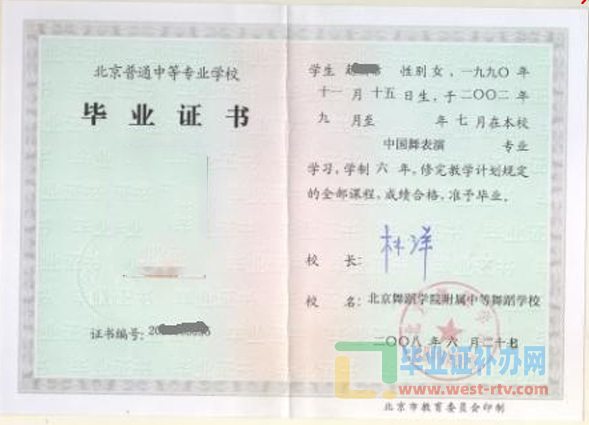 北京普通中等专业学校
毕业证书
证书编号:20
学生 性别女,一九九〇年
十一月十五日生,于二〇〇二年
九 月至 年七月在本校
中国舞表演 专业
学习,学制六年,修完教学计划规定
的全部课程,成绩合格,准予毕业。
校 长: 林洋
校 名: 北京舞蹈学院附属中等舞蹈学校
二〇〇八年六月二十七
毕业证补办网
www.west-rtv.com
北京市教育委员会印制